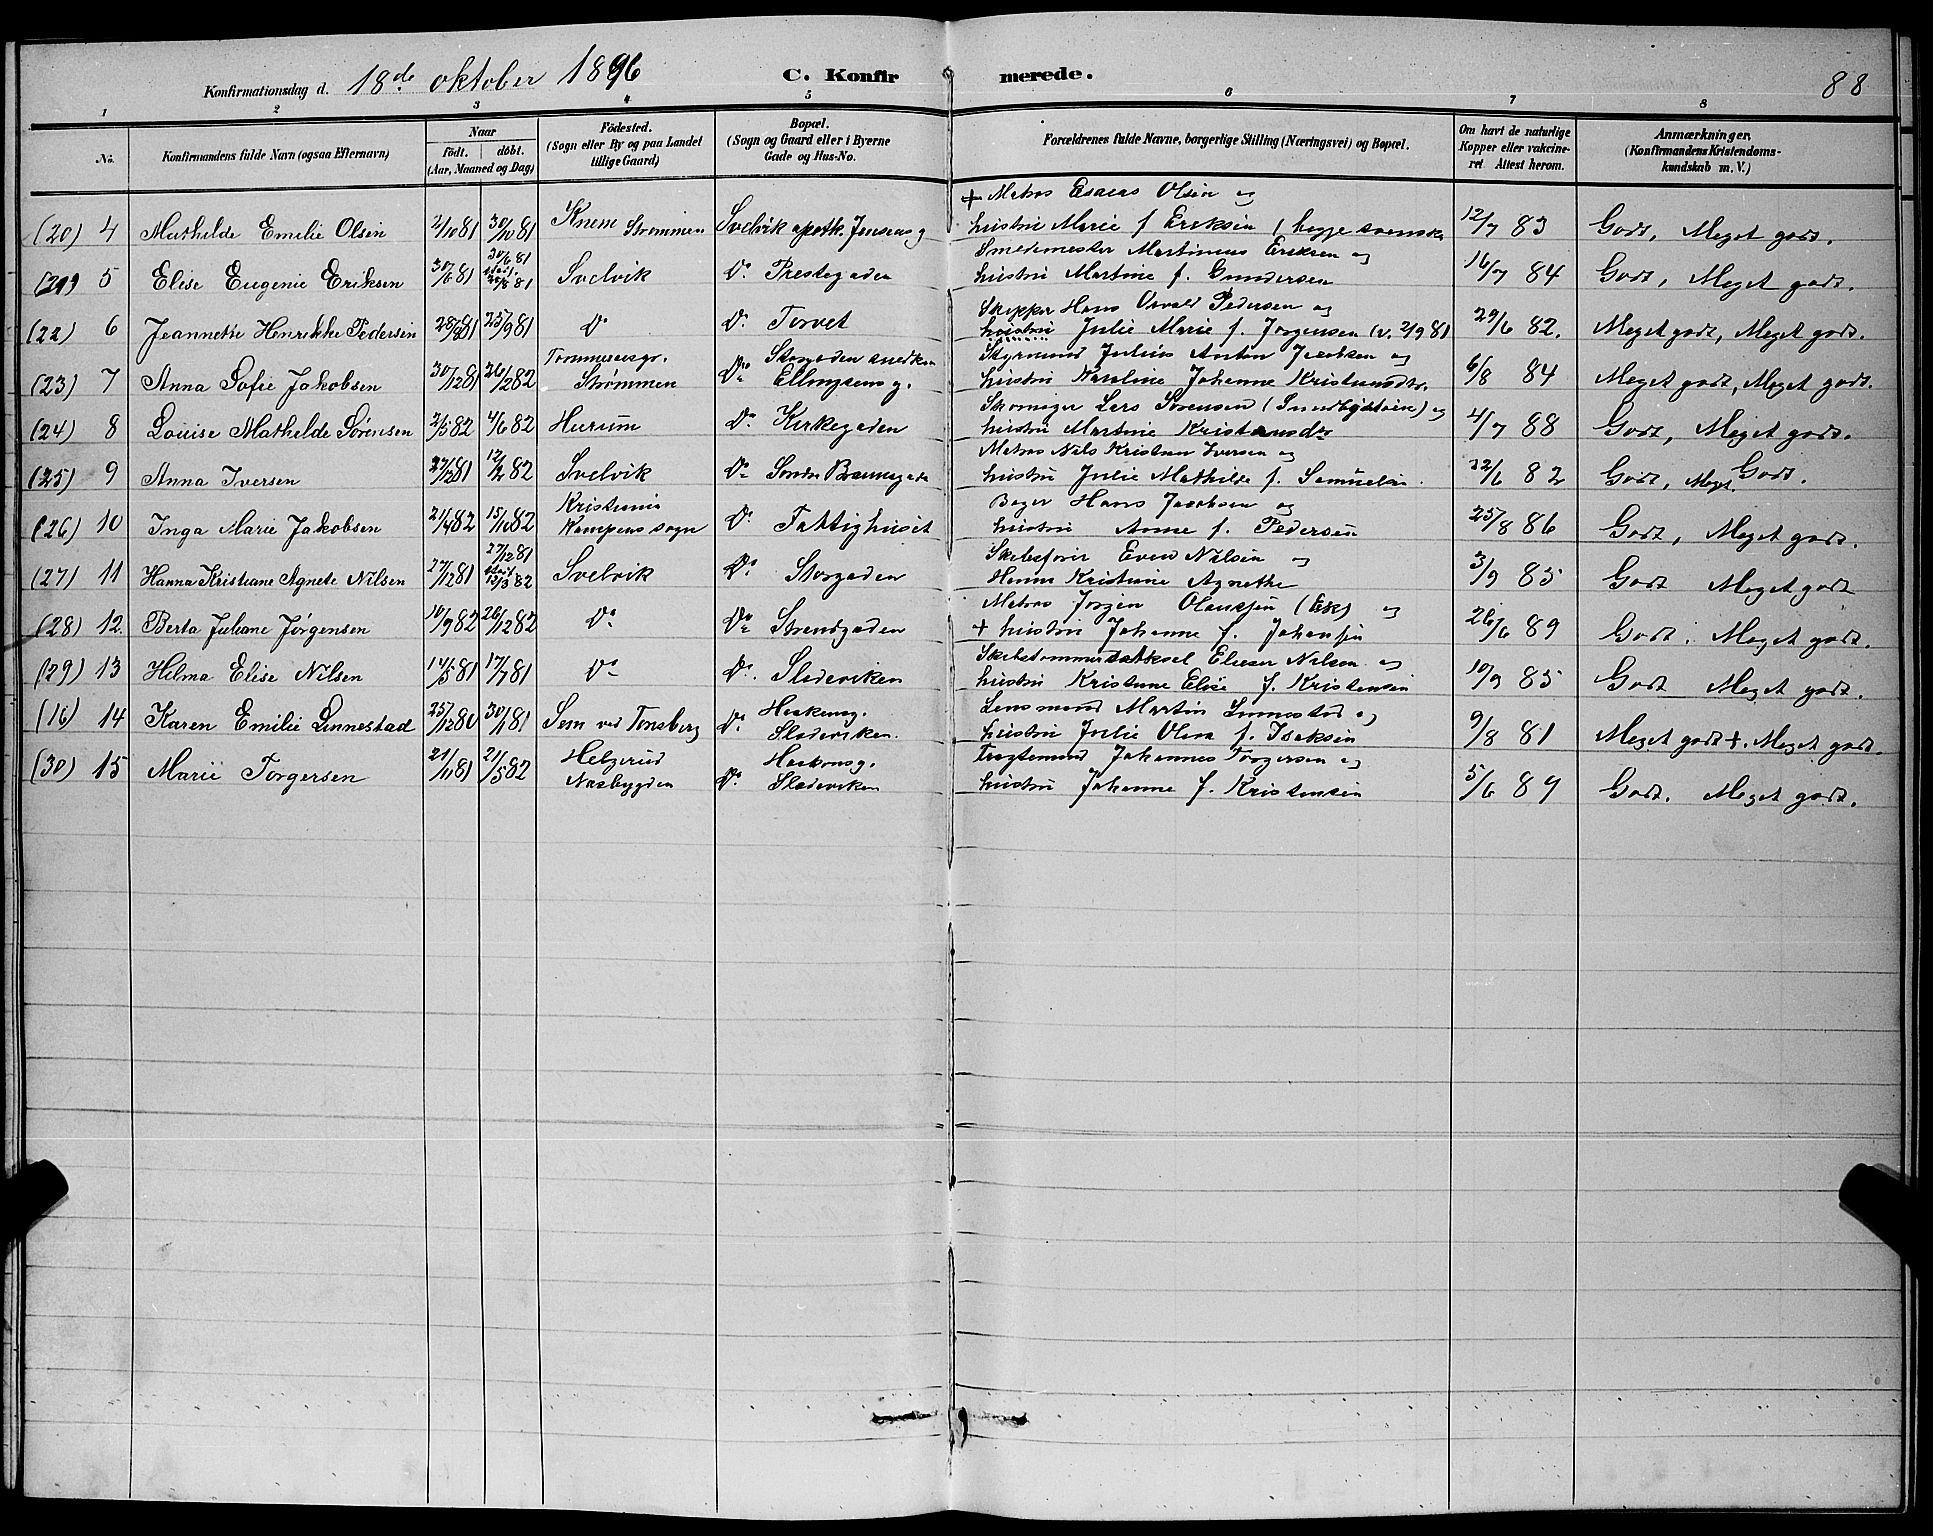 Konfirmationsdag d. 18de oktober 1896 C. Konfirmerede. 88
1 2 3 4 5 6 7 8
No. Konfirmandens fulde Navn (ogsaa Efternavn) Naar födt. döbt. (Aar, Maaned og Dag) Födested. (Sogn eller By og paa Landet tillige Gaard) Bopæl. (Sogn og Gaard eller i Byerne Gade og Hus-No. Forældrenes fulde Navne, borgerlige Stilling (Næringsvei) og Bopæl. Om havt de naturlige Kopper eller vakcineret. Attest herom. Anmærkninger. (Konfirmandens Kristendomskundskab m. V.)
+ Matros Esaias Olsen og
(20) 4 Mathilde Emilie Olsen 2/10 81 30/10 81 Knem Strømmen Svelvik apoth. Jensens g hustru Marie f. Eriksen (begge svenske 12/7 83 Godt, Meget godt.
30/6 81 Smedemester Martinius Eriksen og
(21) 5 Elise Eugenie Eriksen 30/6 81 81 Svelvik Do. Prestegaden hustru Martine f. Gundersen 16/7 84 Godt, Meget godt.
Skipper Hans Osvald Pedersen og
(22) 6 Jeannette Henrikke Pedersen 81 25/9 81 Do Do. Torvet hustru Julie Marie f. Jørgensen (v. 2/9 81 29/6 82. Meget godt, Meget godt.
Strømmen Storgaden snedker Styrmand Julius Anton Jacobsen og
(23) 7 Anna Sofie Jakobsen 30/12 81 26/2 82 Do Ellingsens g. hustru Karoline Johanne Kristiansdtr. 6/8 84 Meget godt, Meget godt.
Skomager Lars Sørensen og
(24) 8 Louise Mathilde Sørensen 2/5 82 4/6 82 Hurum Do. Kirkegaden hustru Martine Kristiansdtr 4/7 88 Godt, Meget godt.
Matros Nils Kristian Iversen og
(25) 9 Anna Iversen 27/12 81 12/2 82 Svelvik Do Søndre Brannsgade hustru Julie Mathilde f. Samuelsen. 22/6 82 Godt, Meget Godt.
Kristiania Bager Hans Jacobsen og
(26) 10 Inga Marie Jakobsen 21/4 82 15/10 82 Kampens sogn Do. Fattighuset hustru Anne f. Pedersen 25/8 86 Godt, Meget godt.
27/12 81 Skibsfører Even Nilsen og
(27) 11 Hanna Kristiane Agnete Nilsen 27/12 81 12/3 82 Svelvik Do. Storgaden Hanna Kristine Agnethe 3/9 85 Godt Meget godt
Matros Jørgen Olaussen (Esk) og
(28) 12. Berta Juliane Jørgensen 10/9 82 26/12 82 Do Do Strandgaden + hustru Johanne f. Johansen 26/6 89 Godt. Meget godt.
Skibstømmermand Aksel Elieser Nilsen og
(29) 13 Helma Elise Nilsen 14/5 81 17/7 81 Do Do. Sladeviken hustru Kristiane Elise f. Kristensen 10/9 85 Godt Meget godt.
Haakensg. Lensmand Martin Linnestad og
(16) 14 Karen Emilie Linnestad 25/12 80 30/1 81 Sem ved Tønsberg Do Sladeviken. hustru Julie Olava f. Isaksen 9/8 81 Meget godt +. Meget godt.
Helgerud Haakensg. Fragtemand Johannes Torgersen og
(30) 15 Marie Torgersen 21/11 81 21/5 82 Næsbygden Do. Sladeviken hustru Johanne f. Kristensen 5/6 89 Godt. Meget godt.